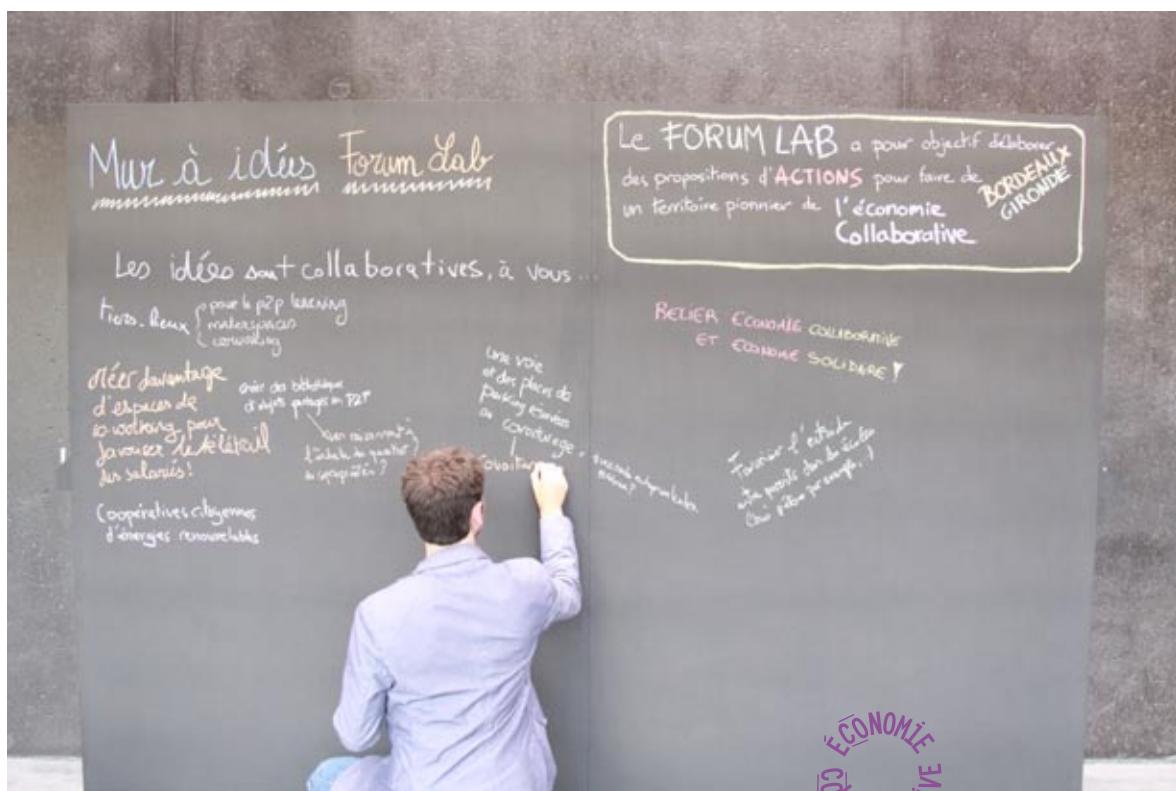 Mur à idées Forum Lab
Le FORUM LAB a pour objectif d'élaborer
des propositions d'ACTIONS pour faire de
BORDEAUX
GIRONDE
un territoire pionnier de l'économie
Collaborative
Les idées sont collaboratives, à vous...
tiers-lieux
pour le p2p learning
makerspaces
coworking
créer davantage
d'espaces de
co-working pour
favoriser le télétravail
des salariés!
créer des bibliothèques
d'objets partagés en P2P
à
l'échelle du quartier
?
Coopératives citoyennes
d'énergies renouvelables
une voie
et des places de
parking réservées
au covoiturage
RELIER ECONOMIE COLLABORATIVE
ET ECONOMIE SOLIDAIRE!
Favoriser l'entraide
entre parents dans les écoles
par exemple...)
ÉCONOMIE